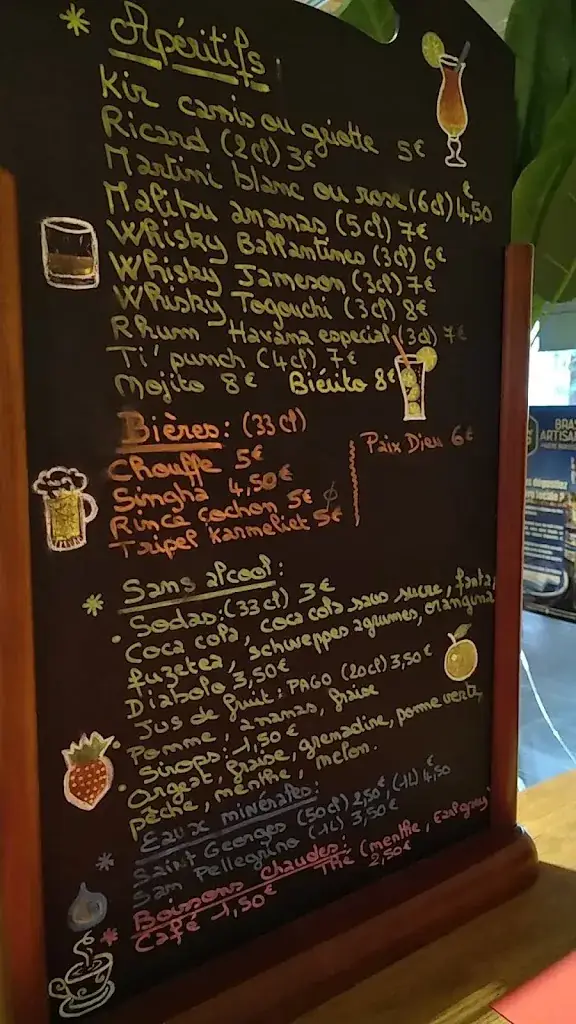 * Apéritifs
Kir camis ou griotte 5€
Ricard (2cl) 3€
Martini blanc ou rose (6cl) 4,50€
Malibu ananas (5cl) 7€
Whisky Ballantines (3cl) 6€
Whisky Jameson (3cl) 7€
Whisky Togouchi (3cl) 8€
Rhum Havana especial (3cl) 7€
Ti' punch (4cl) 7€
Mojito 8€ Biérito 8€
Bières: (33cl)
Chouffe 5€
Singha 4,50€
Rince cochon 5€
Tripel Karmeliet 5€
Paix Dieu 6€
* Sans alcool:
• Sodas: (33cl) 3€
Coca cola, coca cola sans sucre, fanta,
fuzetea, schweppes agrumes, orangina
Diabolo 3,50€
• Jus de fruit: PAGO (20cl) 3,50€
Pomme, ananas, fraise
• Sirops: 1,50€
Orgeat, fraise, grenadine, pomme verte,
pêche, menthe, melon.
* Eaux minérales:
Saint Georges (50cl) 2,50€, (1L) 4,50€
San Pellegrino (1L) 3,50€
* Boissons chaudes:
Café 1,50€ Thé (menthe, Earl grey) 2,50€
BRAS
ARTISA